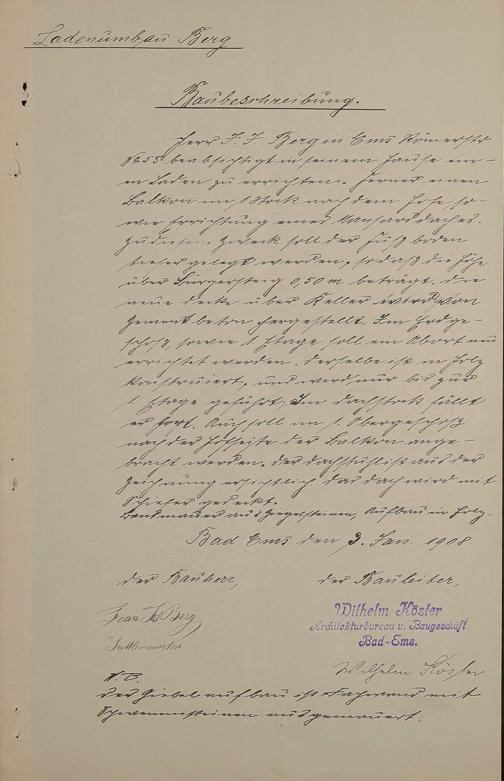 Ladenumbau Berg
Baubeschreibung.
Herr J. J. Berg in Ems Römerstr.
N° 55 beabsichtigt in seinem Hause ein-
en Laden zu errichten. Ferner einen
Balkon im 1 Stock nach dem Hofe so-
wie Errichtung eines Mansarddaches.
Zu diesem Zweck soll der Fußboden
tiefer gelegt werden, sodaß die Höhe
über Bürgersteig 0,50 m beträgt. Die
neue Decke über Keller wird von
Zementbeton hergestellt. Im Erdge-
schoß, sowie 1 Etage soll ein Abort neu
errichtet werden. Derselbe ist in Holz
konstruiert, und wird nur bis zur
1. Etage geführt, Im Dachstock fällt
er fort. Auch soll im 1. Obergeschoß
nach der Hofseite der Balkon ange-
bracht werden. Der Dachstuhl ist aus der
Zeichnung ersichtlich das Dach wird mit
Schiefer gedeckt.
aus Ziegelsteinen, Aufbau in Holz.
Bad Ems den 3. Jan. 1908
der Bauherr, der Bauleiter,
Jean Berg
Sattlermeister
Wilhelm Köster
Architekturbureau u. Baugeschäft
Bad-Ems.
Wilhelm Köster
N.B.
Der Giebelaufbau ist Fachwand mit
Schwemmsteinen ausgemauert.